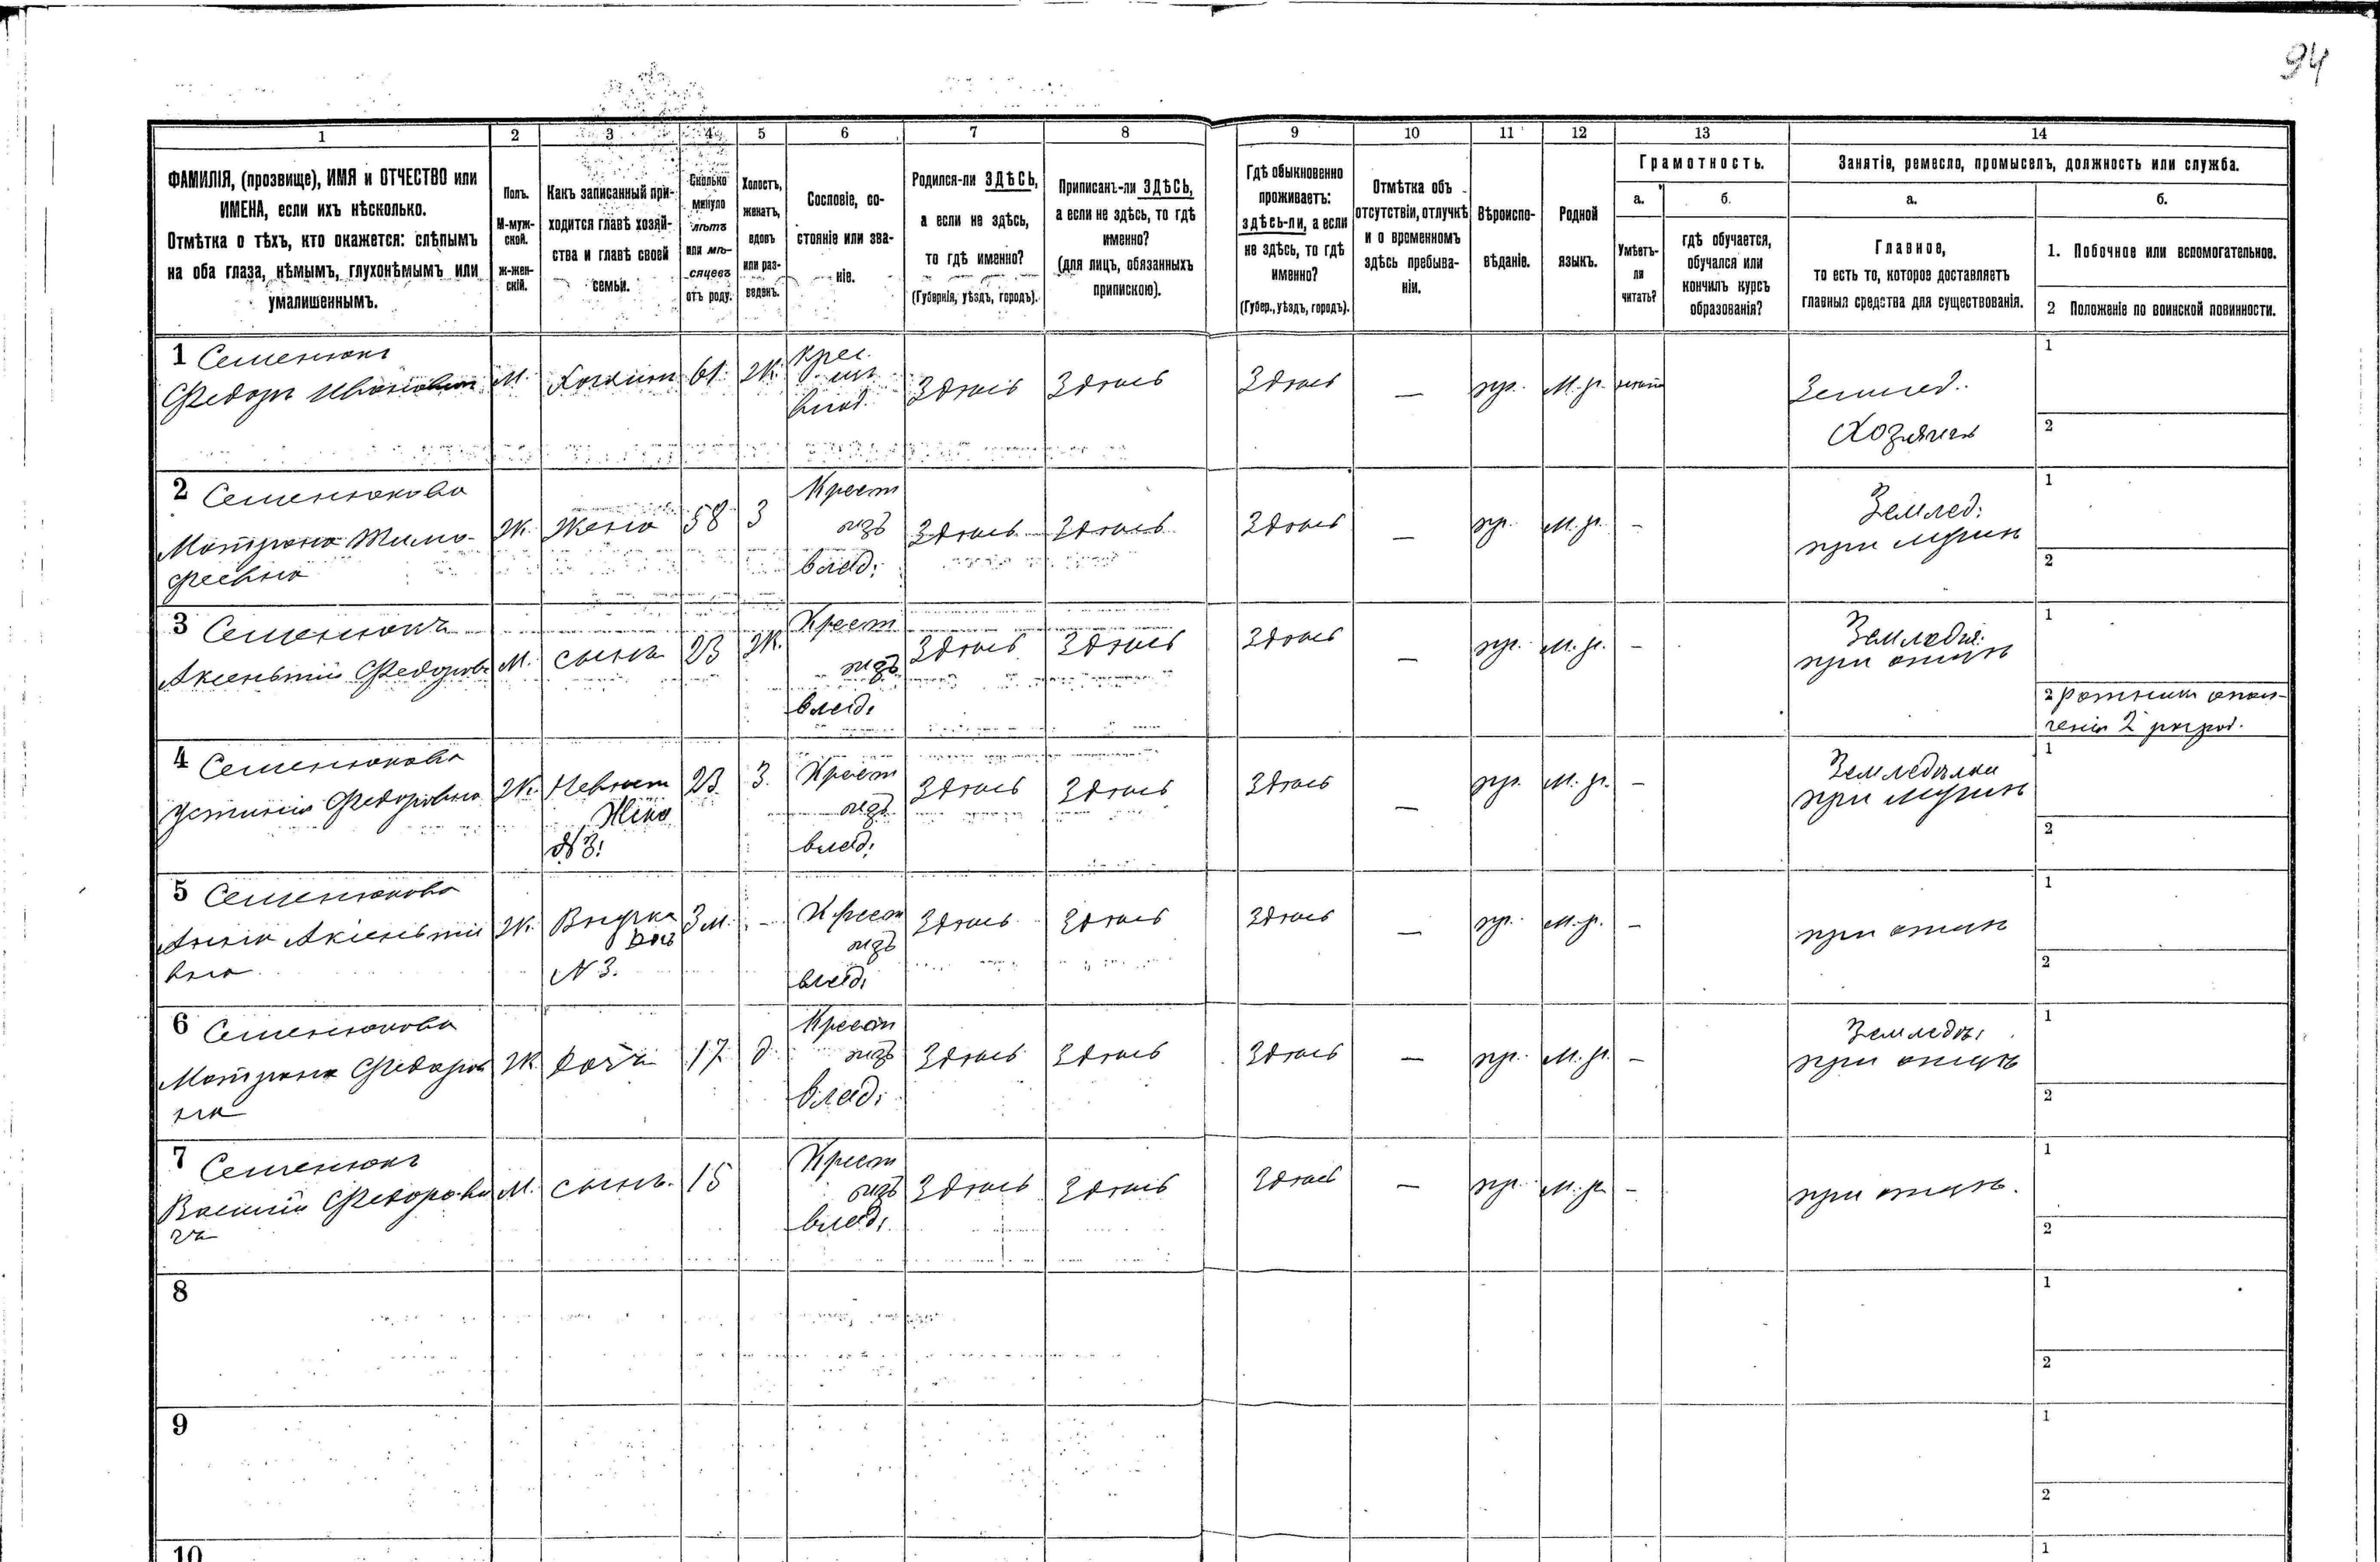 94
1 2 3 4 5 6 7 8 9 10 11 12 13 14
ФАМИЛІЯ, (прозвище), ИМЯ и ОТЧЕСТВО или
ИМЕНА, если ихъ нѣсколько.
Отмѣтка о тѣхъ, кто окажется: слѣпымъ
на оба глаза, нѣмымъ, глухонѣмымъ или
умалишеннымъ.
Полъ.
М-муж-
ской.
Ж-жен-
скій.
Какъ записанный при-
ходится главѣ хозяй-
ства и главѣ своей
семьи.
Сколько
минуло
лѣтъ
или мѣ-
сяцевъ
отъ роду.
Холостъ,
женатъ,
вдовъ
или раз-
веденъ.
Сословіе, со-
стояніе или зва-
ніе.
Родился-ли ЗДѢСЬ,
а если не здѣсь,
то гдѣ именно?
(Губернія, уѣздъ, городъ).
Приписанъ-ли ЗДѢСЬ,
а если не здѣсь, то гдѣ
именно?
(для лицъ, обязанныхъ
припискою).
Гдѣ обыкновенно
проживаетъ:
здѣсь-ли, а если
не здѣсь, то гдѣ
именно?
(Губер., уѣздъ, городъ).
Отмѣтка объ
отсутствіи, отлучкѣ
и о временномъ
здѣсь пребыва-
ніи.
Вѣроиспо-
вѣданіе.
Родной
языкъ.
Грамотность.
а.
Умѣетъ-
ли
читать?
б.
гдѣ обучается,
обучался или
кончилъ курсъ
образованія?
Занятіе, ремесло, промыселъ, должность или служба.
а.
Главное,
то есть то, которое доставляетъ
главныя средства для существованія.
б.
1. Побочное или вспомогательное.
2 Положеніе по воинской повинности.
1 Семенюкъ
Федоръ Ивановичъ М. Хозяинъ 61 Ж. Крес. изъ влад. Здѣсь Здѣсь Здѣсь — пр. М. р. Землед. Хозяинъ 1
2
2 Семенюкова
Матрона Тимо-
феевна Ж. Жена 58 З Крест изъ влад. Здѣсь Здѣсь Здѣсь — пр. М. р. - Землед. при мужѣ 1
2
3 Семенюкъ
Аксентій Федоров М. сынъ 23 Ж. Крест изъ влад. Здѣсь Здѣсь Здѣсь — пр. М. р. - Земледѣл. при отцѣ 1
2 ратникъ опол-
ченія 2 разряд.
4 Семенюкова
Устинія Федоровна Ж. Невѣст Жена №3. 23 З. Крест изъ влад. Здѣсь Здѣсь Здѣсь — пр. М. р. - Земледѣлка при мужѣ 1
2
5 Семенюкова
Анна Аксентіи
вна Ж. Внучка Дочь №3. 3 м. - Крест изъ влад. Здѣсь Здѣсь Здѣсь — пр. М. р. - при отцѣ 1
2
6 Семенюкова
Матрона Федоров
на Ж. Дочь 17 д Крест изъ влад. Здѣсь Здѣсь Здѣсь — пр. М. р. - Земледѣ. при отцѣ 1
2
7 Семенюкъ
Василій Федорови
чъ М. сынъ. 15 Крест изъ влад. Здѣсь Здѣсь Здѣсь — пр. М. р. - при отцѣ. 1
2
8 1
2
9 1
2
10 1